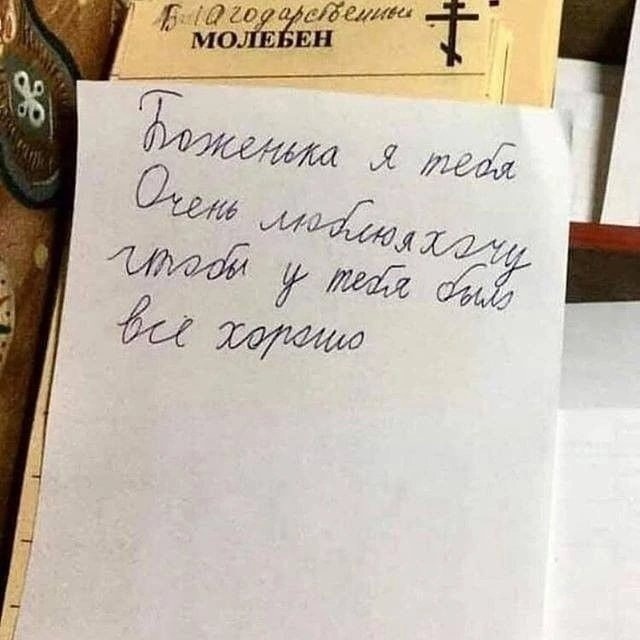 Благодарственный
МОЛЕБЕН
Боженька я тебя
Очень люблюяхочу
чтобы у тебя было
все хорошо